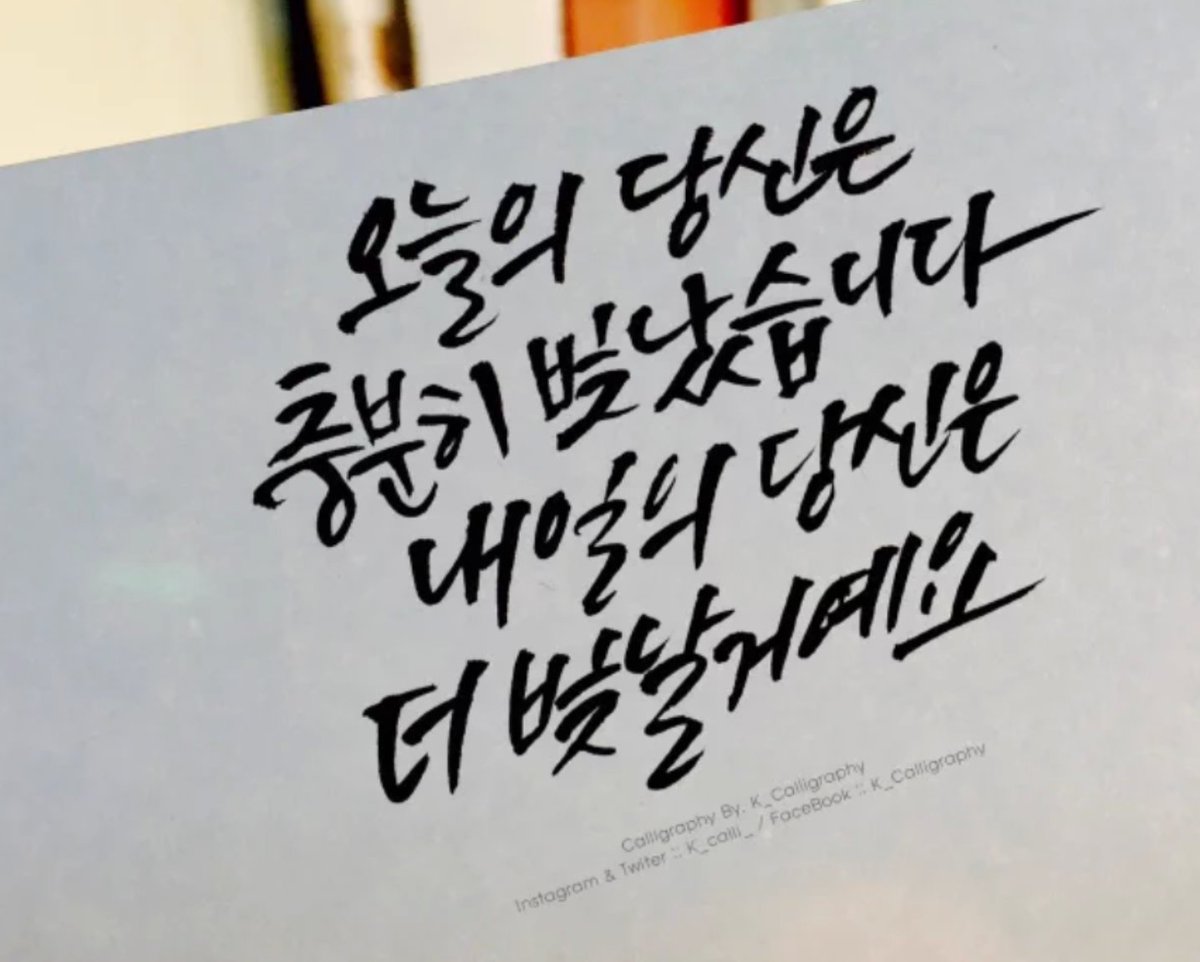 오늘의 당신은
충분히 빛났습니다
내일의 당신은
더 빛날거예요
Calligraphy By. K_Calligraphy
Instagram & Twiter :: K_calli_ / FaceBook :: K_Calligraphy